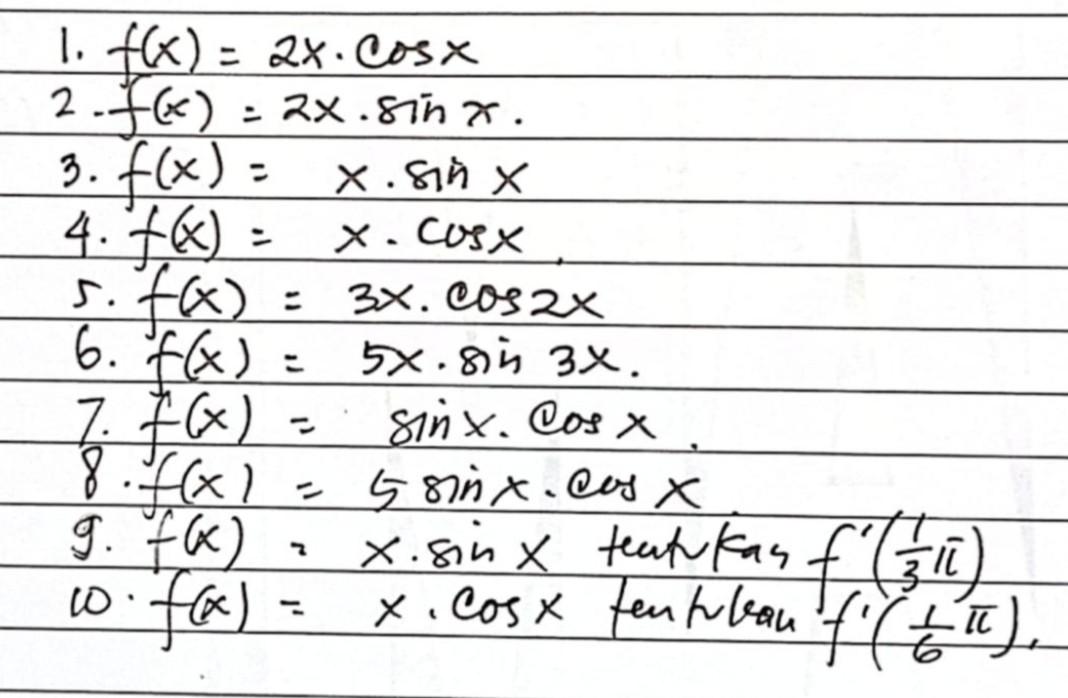 1. f(x) = 2x . cos x
2. f(x) = 2x . sin x.
3. f(x) = x . sin x
4. f(x) = x . cos x
5. f(x) = 3x . cos 2x
6. f(x) = 5x . sin 3x.
7. f(x) = sin x . cos x.
8. f(x) = 5 sin x . cos x
9. f(x) = x . sin x tentukan f'(1/3 π)
10. f(x) = x . cos x tentukan f'(1/6 π).